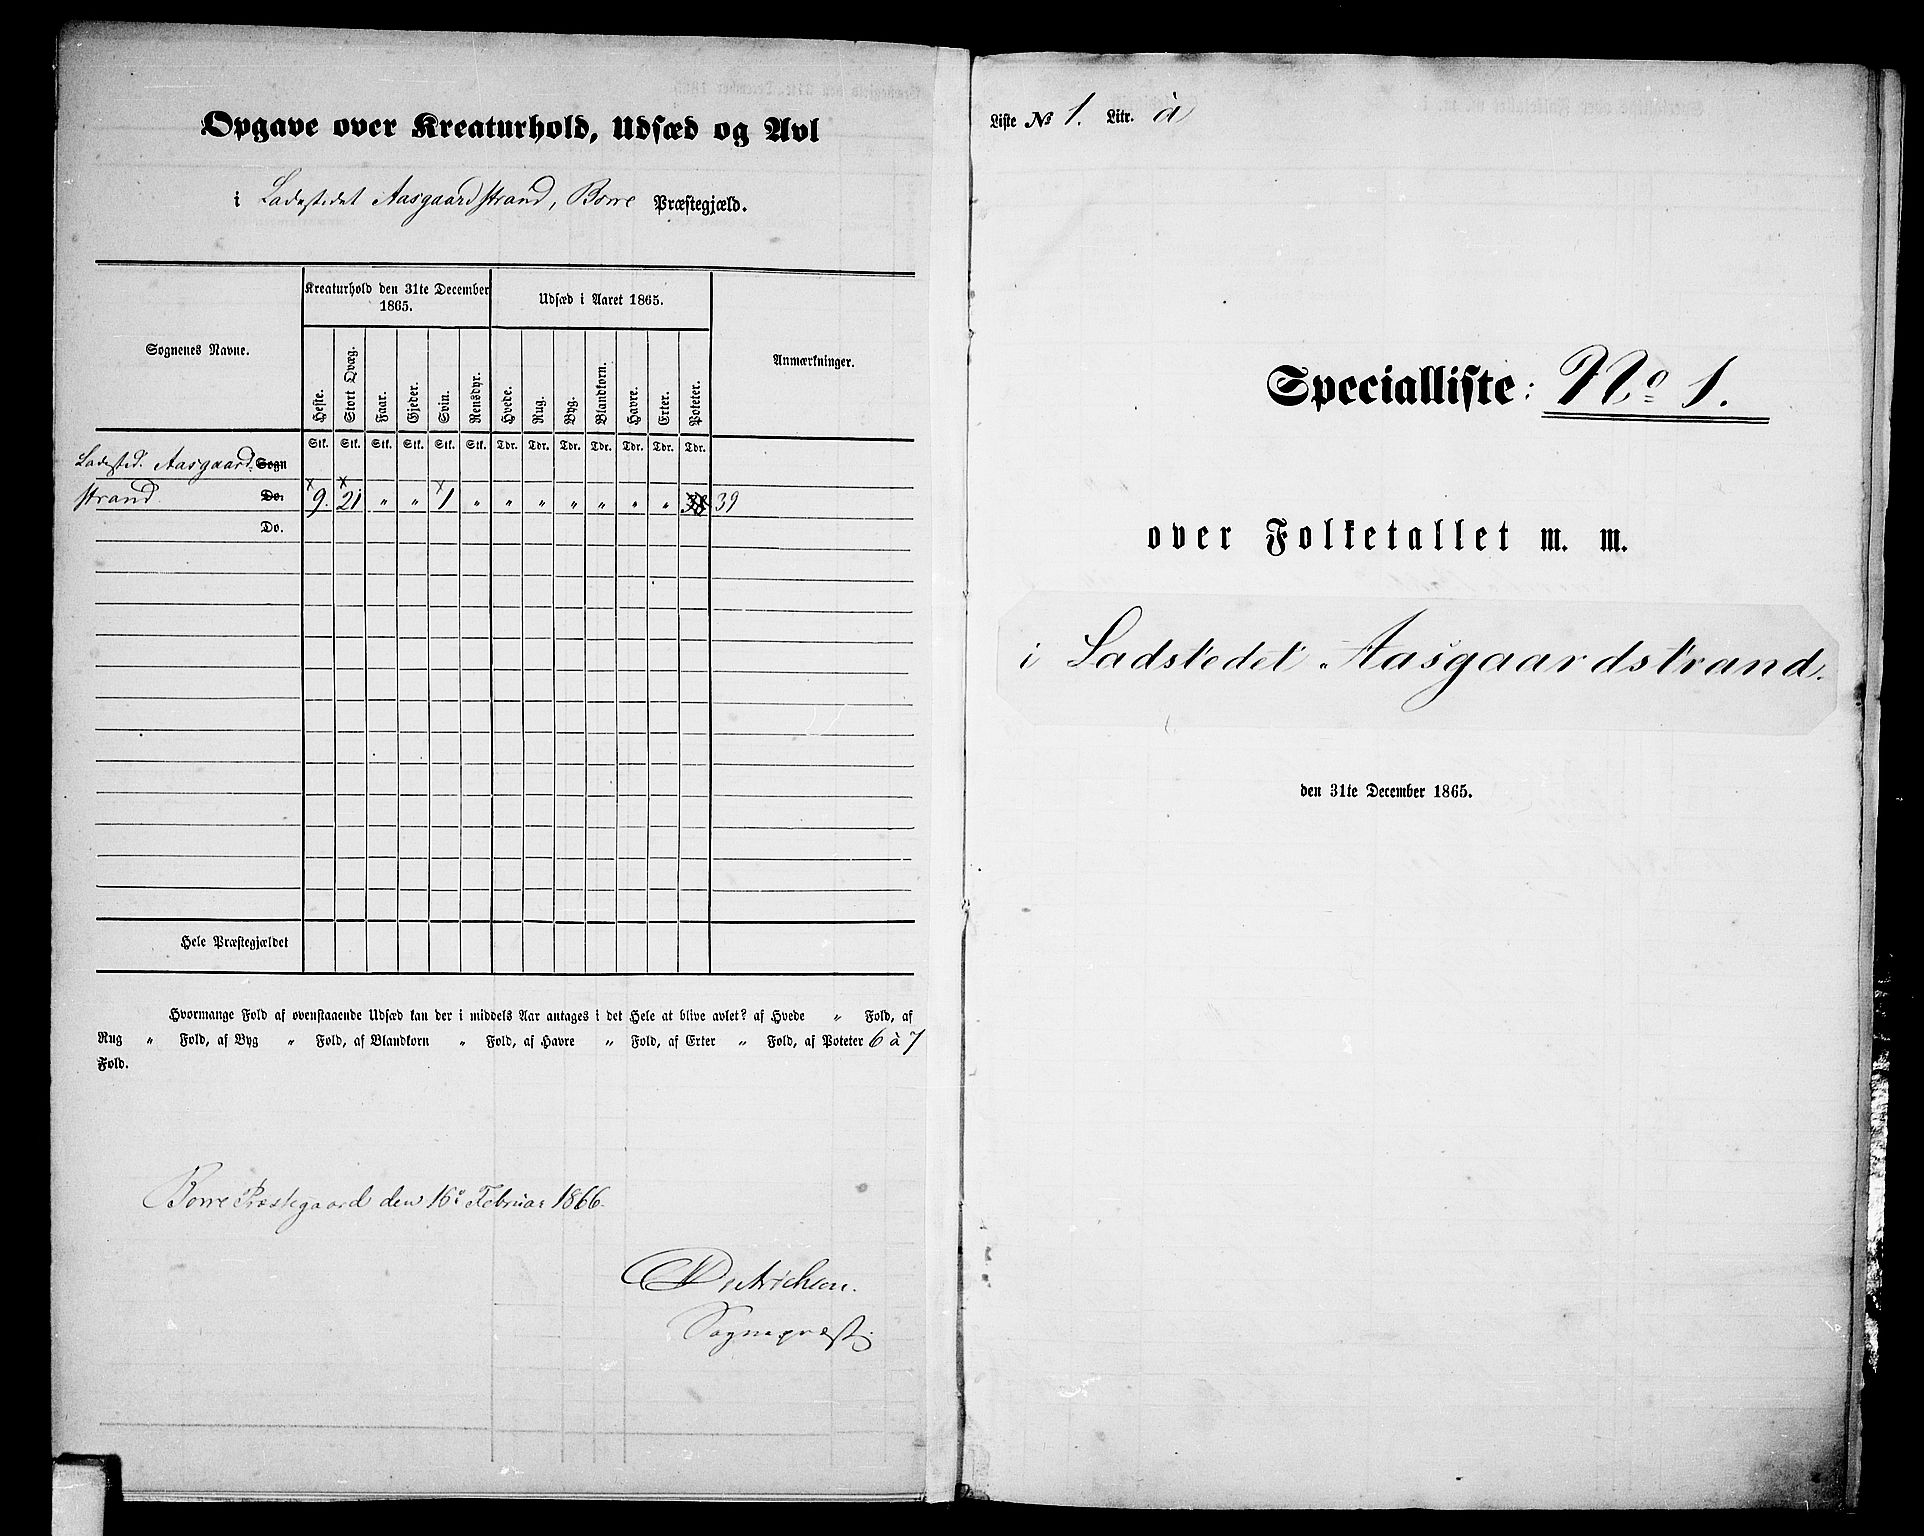 Opgave over Kreaturhold, Udsæd og Avl
i Ladestedet Aasgaardstrand, Borre Præstegjæld.
Sognenes Navne.
Kreaturhold den 31te December
1865.
Udsæd i Aaret 1865.
Anmærkninger.
Heste. Stort Qvæg. Faar. Gjeder. Svin. Rensdyr. Hvede. Rug. Byg. Blandkorn. Havre. Erter. Poteter.
Stk. Stk. Stk. Stk. Stk. Stk. Tdr. Tdr. Tdr. Tdr. Tdr. Tdr. Tdr.
Ladested. Aasgaard Sogn
strand. Do. 9. 21 „ „ 1 „ „ „ „ „ „ „ 38 39
Do.
Hele Præstegjældet
Hvormange Fold af ovenstaaende Udsæd kan der i middels Aar antages i det Hele at blive avlet? af Hvede „ Fold, af
Rug „ Fold, af Byg „ Fold, af Blandkorn „ Fold, af Havre „ Fold, af Erter „ Fold, af Poteter 6 à 7
Fold.
Borre Præstegaard den 16de Februar 1866.
Dietrichson.
Sognepræst.
Liste No 1. Litr. a
Specialliste: No 1.
over Folketallet m. m.
i Ladstedet Aasgaardstrand.
den 31te December 1865.